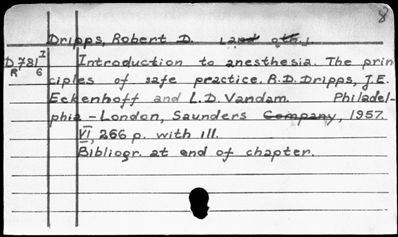 8
Dripps, Robert D. [and oth.].
D 781 I Introduction to anesthesia. The prin
R 6 ciples of safe practice. R.D. Dripps, J.E.
Eckenhoff and L.D. Vandam. Philadel-
phia - London, Saunders Company, 1957.
VI, 266 p. with ill.
Bibliogr. at end of chapter.